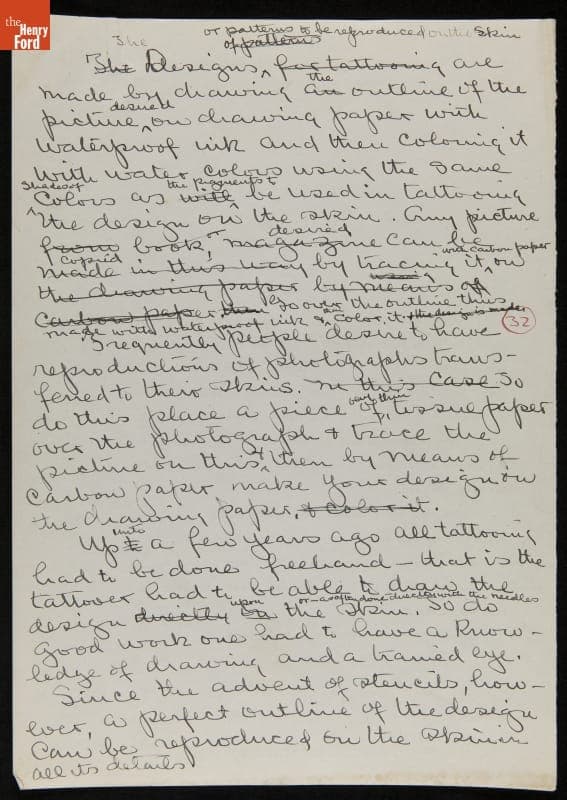 the
Henry
Ford
The
or patterns to be reproduced on the skin
of patterns
The Designs, for tattooing are
made by drawing an the outline of the
picture desired on drawing paper with
waterproof ink and then coloring it
with water colors using the same
shades of the pigments to
colors as will be used in tattooing
the design on the skin. Any picture
from book, or magazine desired can be
copied with carbon paper
made in this way by tracing it, on
the drawing paper by means using of
carbon paper then Go over the outline thus
made with waterproof ink & color it. the design is made
32
Frequently people desire to have
reproductions of photographs trans-
ferred to their skins. In this case So
do this place a piece of very thin tissue paper
over the photograph & trace the
picture on this & then by means of
carbon paper make your design on
the drawing paper. & color it.
Up unto a few years ago all tattooing
had to be done freehand – that is the
tattooer had to be able to draw the
or – as often done directly with the needles
design directly on upon the skin. So do
good work one had to have a know-
ledge of drawing and a trained eye.
Since the advent of stencils, how-
ever, a perfect outline of the design
can be reproduced on the skin in
all its details